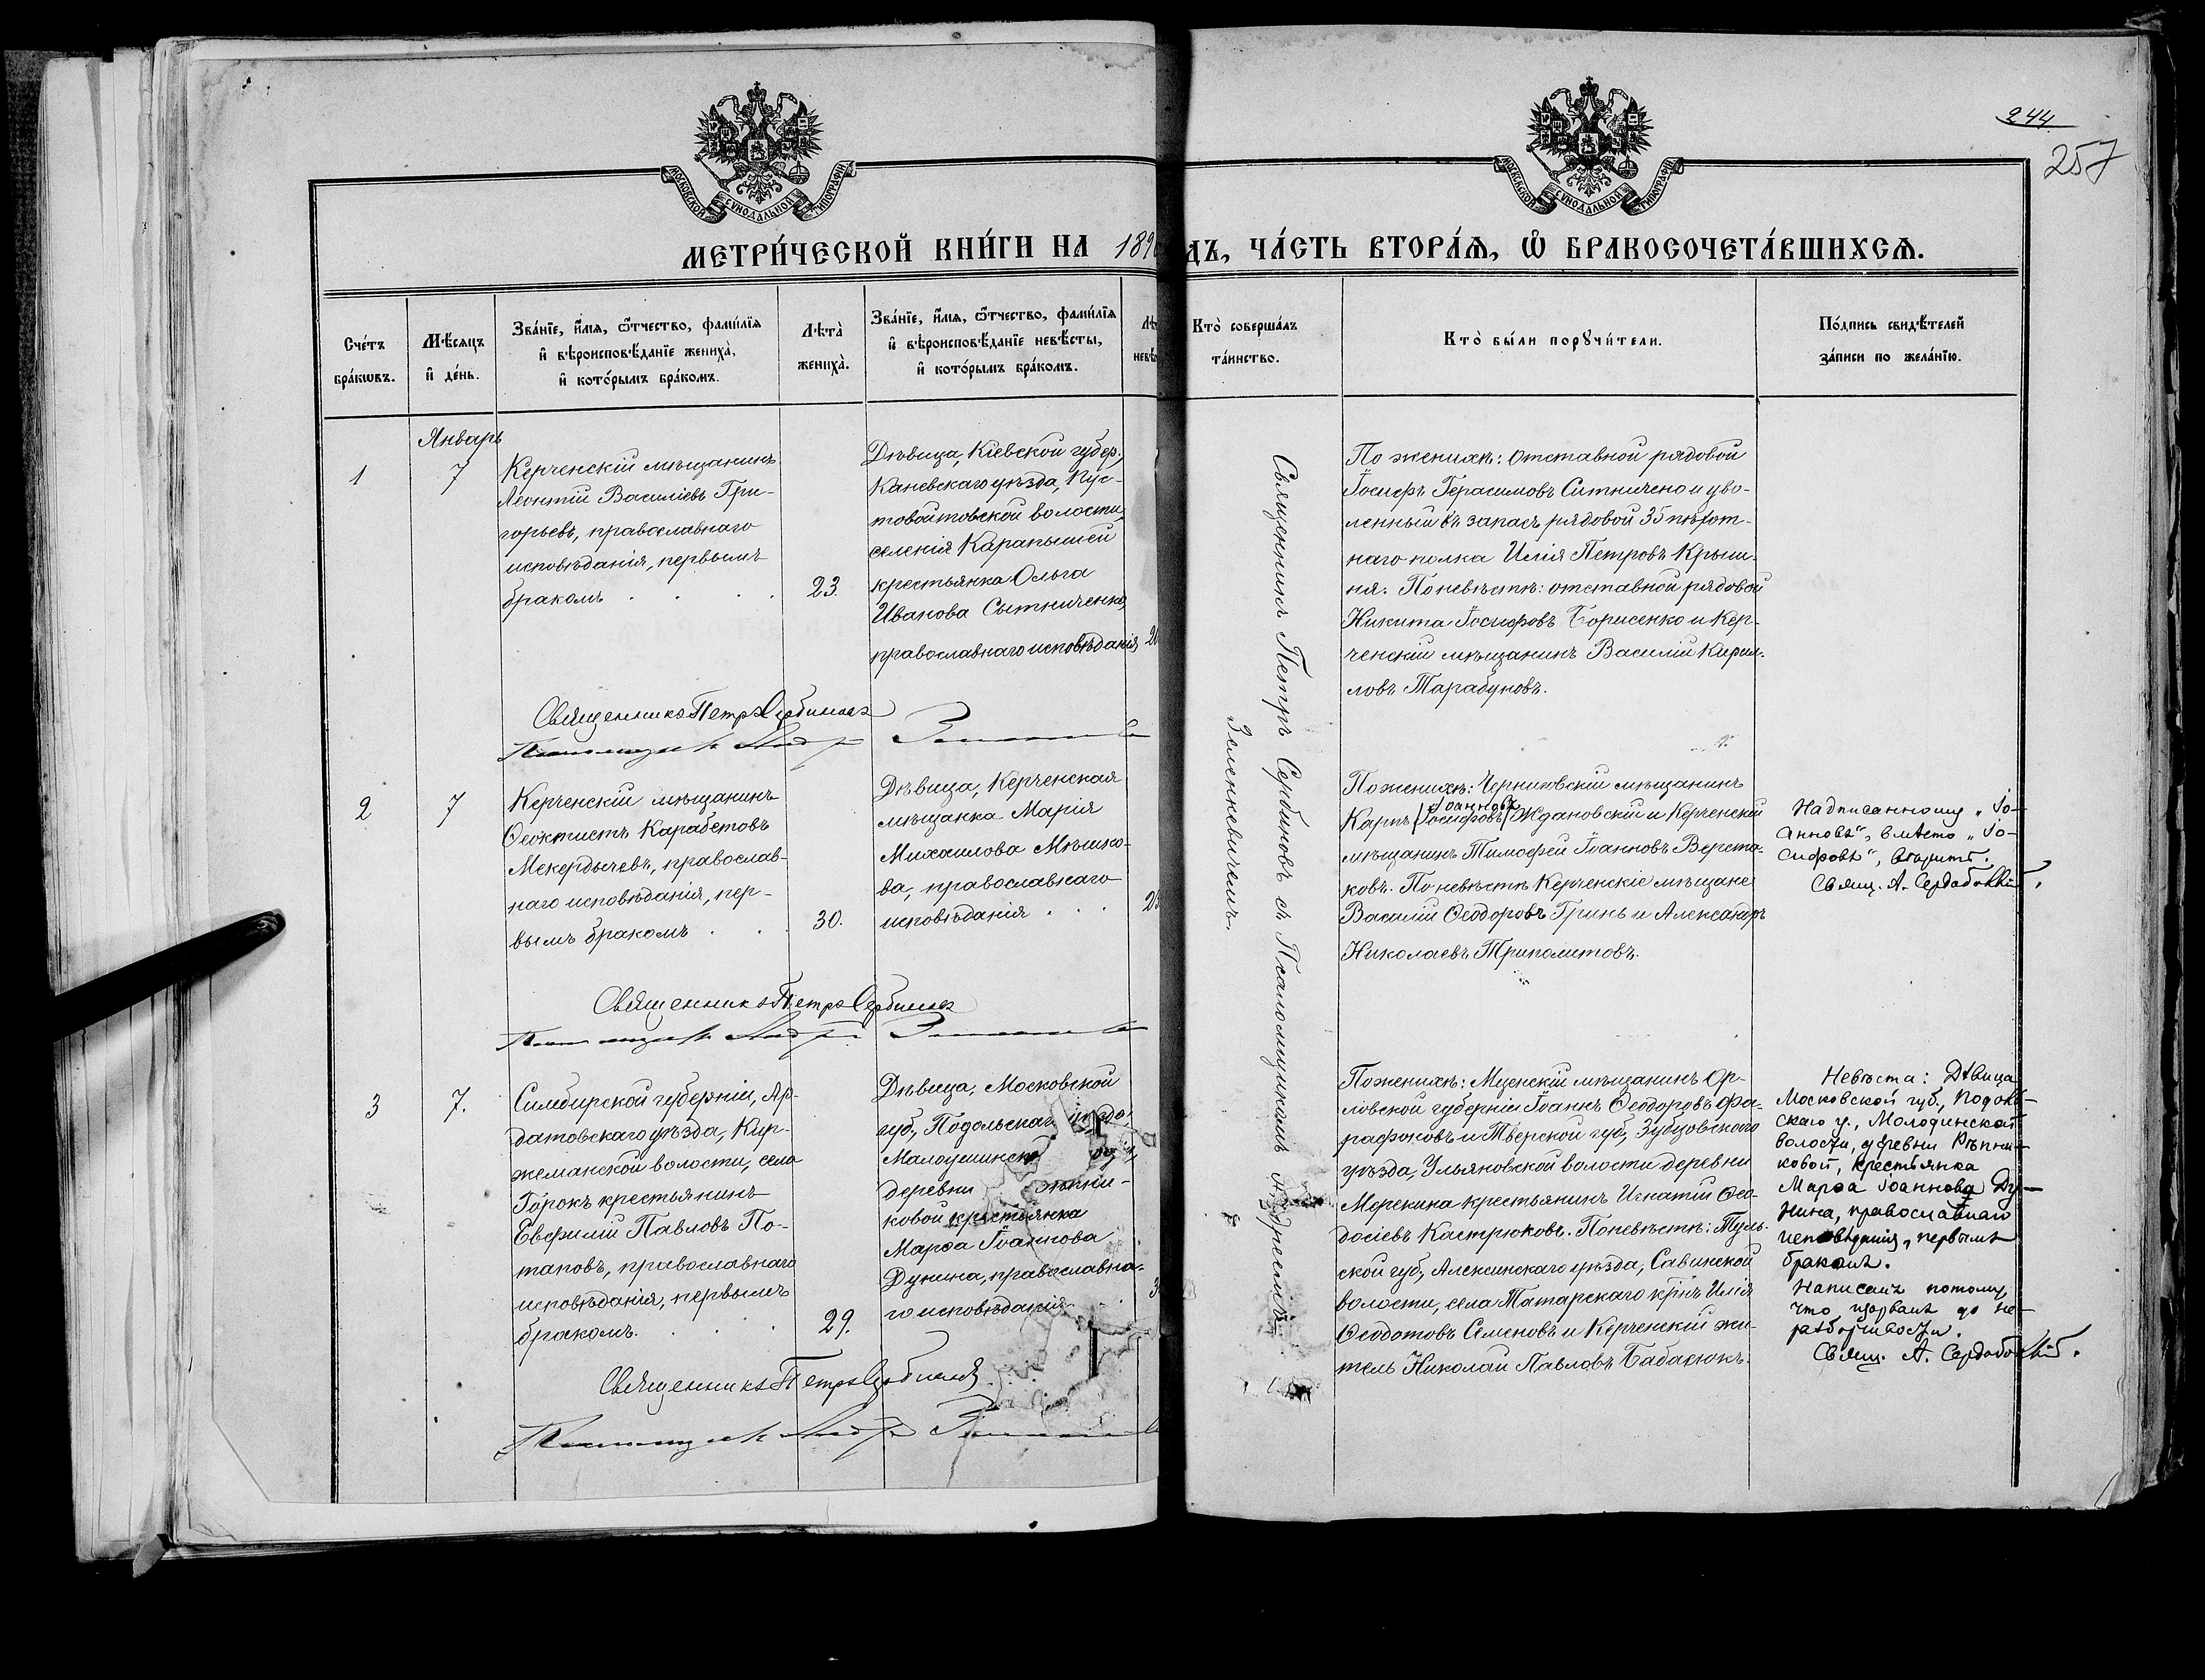 МОСКОВСКОЙ СУНОДАЛЬНОЙ ТИПОГРАФІИ
МОСКОВСКОЙ СУНОДАЛЬНОЙ ТИПОГРАФІИ
244
257
МЕТРИ́ЧЕСКОЙ КНИ́ГИ НА 189
ДЪ, ЧА́СТЬ ВТОРА́Я, Ѡ҆ БРАКОСОЧЕТА́ВШИХСЯ.
Сче́тъ
бра́кωвъ.
Мѣ́сяцъ
и҆ де́нь.
Зва́нїе, и҆́мя, ѻ҆́тчество, фами́лїя
и҆ вѣроисповѣ́данїе жениха̀,
и҆ кото́рымъ бра́комъ.
Лѣта̀
жениха̀.
Зва́нїе, и҆́мя, ѻ҆́тчество, фами́лїя
и҆ вѣроисповѣ́данїе невѣ́сты,
и҆ кото́рымъ бра́комъ.
Лѣ
невѣ
Кто̀ соверша́лъ
та́инство.
Кто̀ бы́ли порꙋчи́тели.
По́дпись свидѣ́телей
за́писи по жела́нїю.
1
Январь
7
Керченскій мѣщанинъ
Леонтій Василіевъ Гри-
горьевъ, православнаго
исповѣданія, первымъ
бракомъ . . .
23.
Дѣвица, Кіевской губер.,
Каневскаго уѣзда, Пус-
товойтовской волости,
селенія Карапышей
крестьянка Ольга
Иванова Сытниченко,
православнаго исповѣданія
Священникъ Петръ Сербиновъ
Священникъ Петръ Сербиновъ съ Псаломщикомъ Андреемъ
Зеленкевичемъ.
По женихѣ: отставной рядовой
Іосифъ Герасимовъ Ситничено и уво-
ленный въ запасъ рядовой 35 пѣхот-
наго полка Илія Петровъ Крыш-
ня. По невѣстѣ: отставной рядовой
Никита Іосифовъ Борисенко и Кер-
ченскій мѣщанинъ Василій Кирил-
ловъ Тарабуновъ.
2
7
Керченскій мѣщанинъ
Ѳеоктистъ Карабетовъ
Мекердычевъ, православ-
наго исповѣданія, пер-
вымъ бракомъ . . .
30.
Дѣвица, Керченская
мѣщанка Марія
Михаилова Мѣшко-
ва, православнаго
исповѣданія . . .
Священникъ Петръ Сербиновъ
По женихѣ: Черниговскій мѣщанинъ
Іоанновъ
Карпъ (Іосифовъ) Ждановскій и Керченскій
мѣщанинъ Тимоѳей Іоанновъ Верста-
ковъ. По невѣстѣ Керченскіе мѣщане
Василій Ѳеодоровъ Гринь и Александръ
Николаевъ Триполитовъ.
Надписанному „Іо-
анновъ“, вмѣсто „Іо-
сифовъ“, вѣрить.
Свящ. А. Сердобольскій.
3
7.
Симбирской губерніи, Ар-
датовскаго уѣзда, Кир-
жеманской волости, села
Горокъ крестьянинъ
Евфимій Павловъ По-
таповъ, православнаго
исповѣданія, первымъ
бракомъ. . . .
29.
Дѣвица, Московской
губ., Подольскаг уѣзда,
деревни
ковой крестьянка
Марѳа Іоаннова
Дунина, православна-
го исповѣданія
Священникъ Петръ Сербиновъ
По женихѣ: Мценскій мѣщанинъ Ор-
ловской губерніи Іоаннъ Ѳеодоровъ Фа-
рафоновъ и Тверской губ., Зубцовскаго
уѣзда, Ульяновской волости деревни
Мерекина крестьянинъ Игнатій Ѳео-
досіевъ Кастрюковъ. По невѣстѣ: Туль-
ской губ., Алексинскаго уѣзда, Савинской
волости, села Татарскаго кр-нъ Илія
Ѳеодотовъ Семеновъ и Керченскій жи-
тель Николай Павловъ Бабасюкъ.
Невѣста: Дѣвица
Московской губ., Подоль-
скаго у., Молодинской
волости, деревни Рѣпни-
ковой, крестьянка
Марѳа Іоаннова Ду-
нина, православнаго
исповѣданія, первымъ
бракомъ.
Написалъ потому,
что изорвано до не-
разборчивости.
Свящ. А. Сердобольскій.